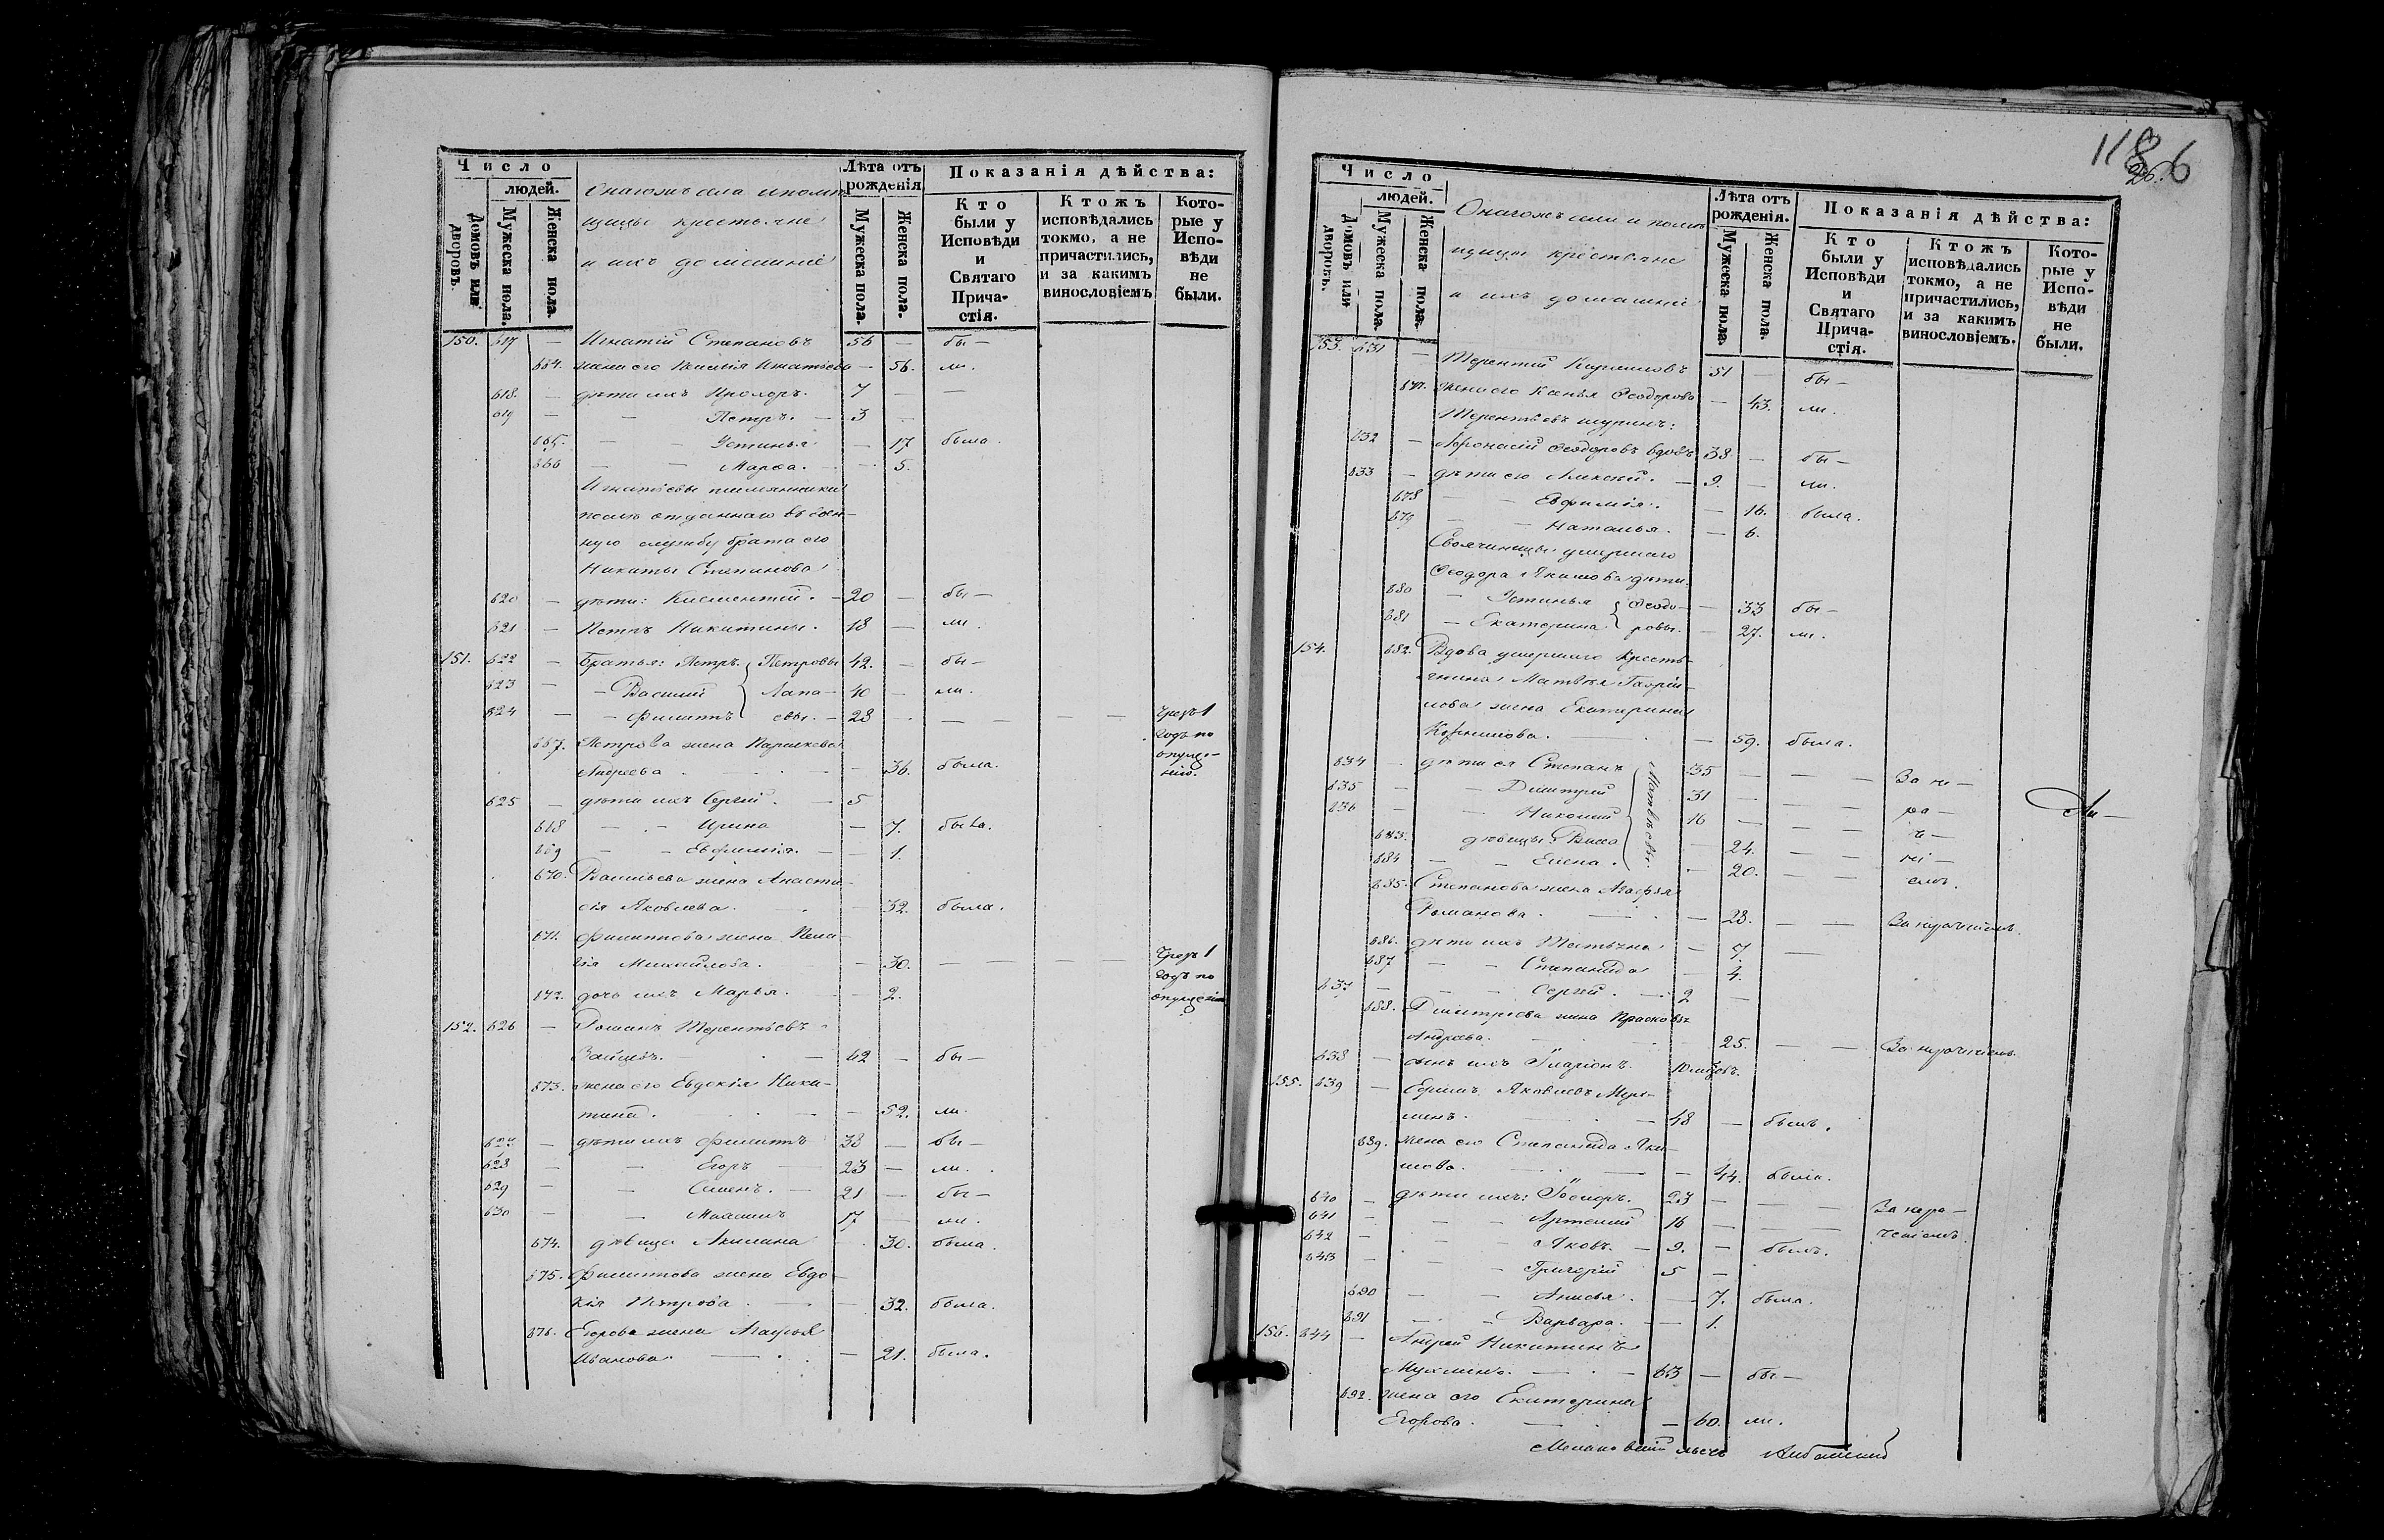 Число
людей.
Домовъ или дворовъ.
Мужеска пола.
Женска пола.
Онагожъ села и помѣ-
щицы крестьяне
и ихъ домашніе
Лѣта отъ рожденія
Мужеска пола.
Женска пола.
Показанія дѣйства:
Кто были у Исповѣди и Святаго Причастія.
Ктожъ исповѣдались токмо, а не причастились, и за какимъ винословіемъ
Которые у Исповѣди не были.
150. 617 — Игнатій Степановъ 56 — бы—
664. жена его Игнатіева — 56. ли.
618. — дѣти ихъ Прохоръ. 7 — —
619 — — Петръ. — 3
665. — — Устинья — 17 была.
666 — — Марѳа. — 5.
Игнатіевы племянники
отданнаго въ воен-
ную службу брата его
Никиты Степанова
620 — дѣти: Климентій. — 20 — бы—
621 — Петръ Никитины. 18 — ли.
151. 622 — Братья: Петръ Петровы 42. — бы—
623 — — Василій Лапа- 40 — ли.
624 — — Филиппъ евы. — 28 — — — — Чрезъ 1
годъ по
опуще-
нію.
667. Петрова жена Параскева
Андреева — 36. была.
625 — дѣти ихъ Сергій. — 5
668 — — Ирина — 7. была.
669 — — Евфимія. — 1.
670. Васильева жена Анаста-
сія Яковлева. — 32. была.
671. Филиппова жена Пела-
гія Михайлова. — 30. — — — — Чрезъ 1
годъ по
опущенію
672. дочь ихъ Марья. — 2.
152. 626 — Романъ Терентьевъ
Зайцевъ. — 62 — бы—
673. жена его Евдокія Ники-
тина. — 52. ли.
627. — дѣти ихъ Филиппъ 38 — бы—
628 — — Егоръ — 23 — ли.
629 — — Семенъ. — 21 — бы—
630 — — Максимъ 17 — ли.
674. дѣвица Акилина 30. была.
675. Филиппова жена Евдо-
кія Петрова — 32. была.
676. Егорова жена Агафья
Иванова — 21. была.
118 6
26.
Число
людей.
Домовъ или дворовъ.
Мужеска пола.
Женска пола.
Онагожъ села и помѣ-
щицы крестьяне
и ихъ домашніе
Лѣта отъ рожденія.
Мужеска пола.
Женска пола.
Показанія дѣйства:
Кто были у Исповѣди и Святаго Причастія.
Ктожъ исповѣдались токмо, а не причастились, и за какимъ винословіемъ.
Которые у Исповѣди не были.
153. 631 — Терентій Кирилловъ 51 — бы—
677. жена его Ксенья Ѳеодорова — 43. ли.
Терентьевъ шуринъ:
632 — Афонасій Ѳеодоровъ вдовъ 38 — бы—
633 — дѣти его Алексѣй. — 9. — ли.
678 — — Евфимія. — 16. была.
679 — — Наталья. — 6.
Своячиницы умершаго
Ѳеодора Якимова дѣти.
680 — Устинья Ѳеодо- — 33 бы—
681 — Екатерина ровы. — 27. ли.
154. 682. Вдова умершаго кресть-
янина Матвѣя Гаврі-
лова жена Екатерина
Корнилова. — 59. была.
634 — дѣти ея Степанъ Матвѣевы. 35 — — — За не-
635 — — Димитрій 31 — — ра-
636 — — Николай 16 — — — че-
683. дѣвицы: Васса — 24. — — ні-
684 — — Елена. — 20. — — емъ.
685. Степанова жена Агафья
Романова. — 28. — — За нераченіемъ.
686. дѣти ихъ Татьяна — 7. —
687 — — Степанида — 4.
637. — — Сергій. — 2 —
688. Димитріева жена Прасковья
Андреева. — 25. — — За нераченіемъ.
638 — сынъ ихъ Иларіонъ. 10 мѣсяцовъ.
155. 639 — Ефимъ Яковлевъ
48 — былъ.
689. жена его Степанида Яки-
мова. — 44. была.
640 — дѣти ихъ: Ѳеодоръ. 23 — — — За нера-
641 — — Артемій 16 — — — ченіемъ.
642 — — Яковъ. — 9. — былъ.
643 — — Григорій 5 —
690 — — Анисья. — 7. была.
691 — — Варвара. — 1.
156. 644 — Андрей Никитинъ
63 — бы—
692. жена его Екатерина
Егорова. — 60. ли.